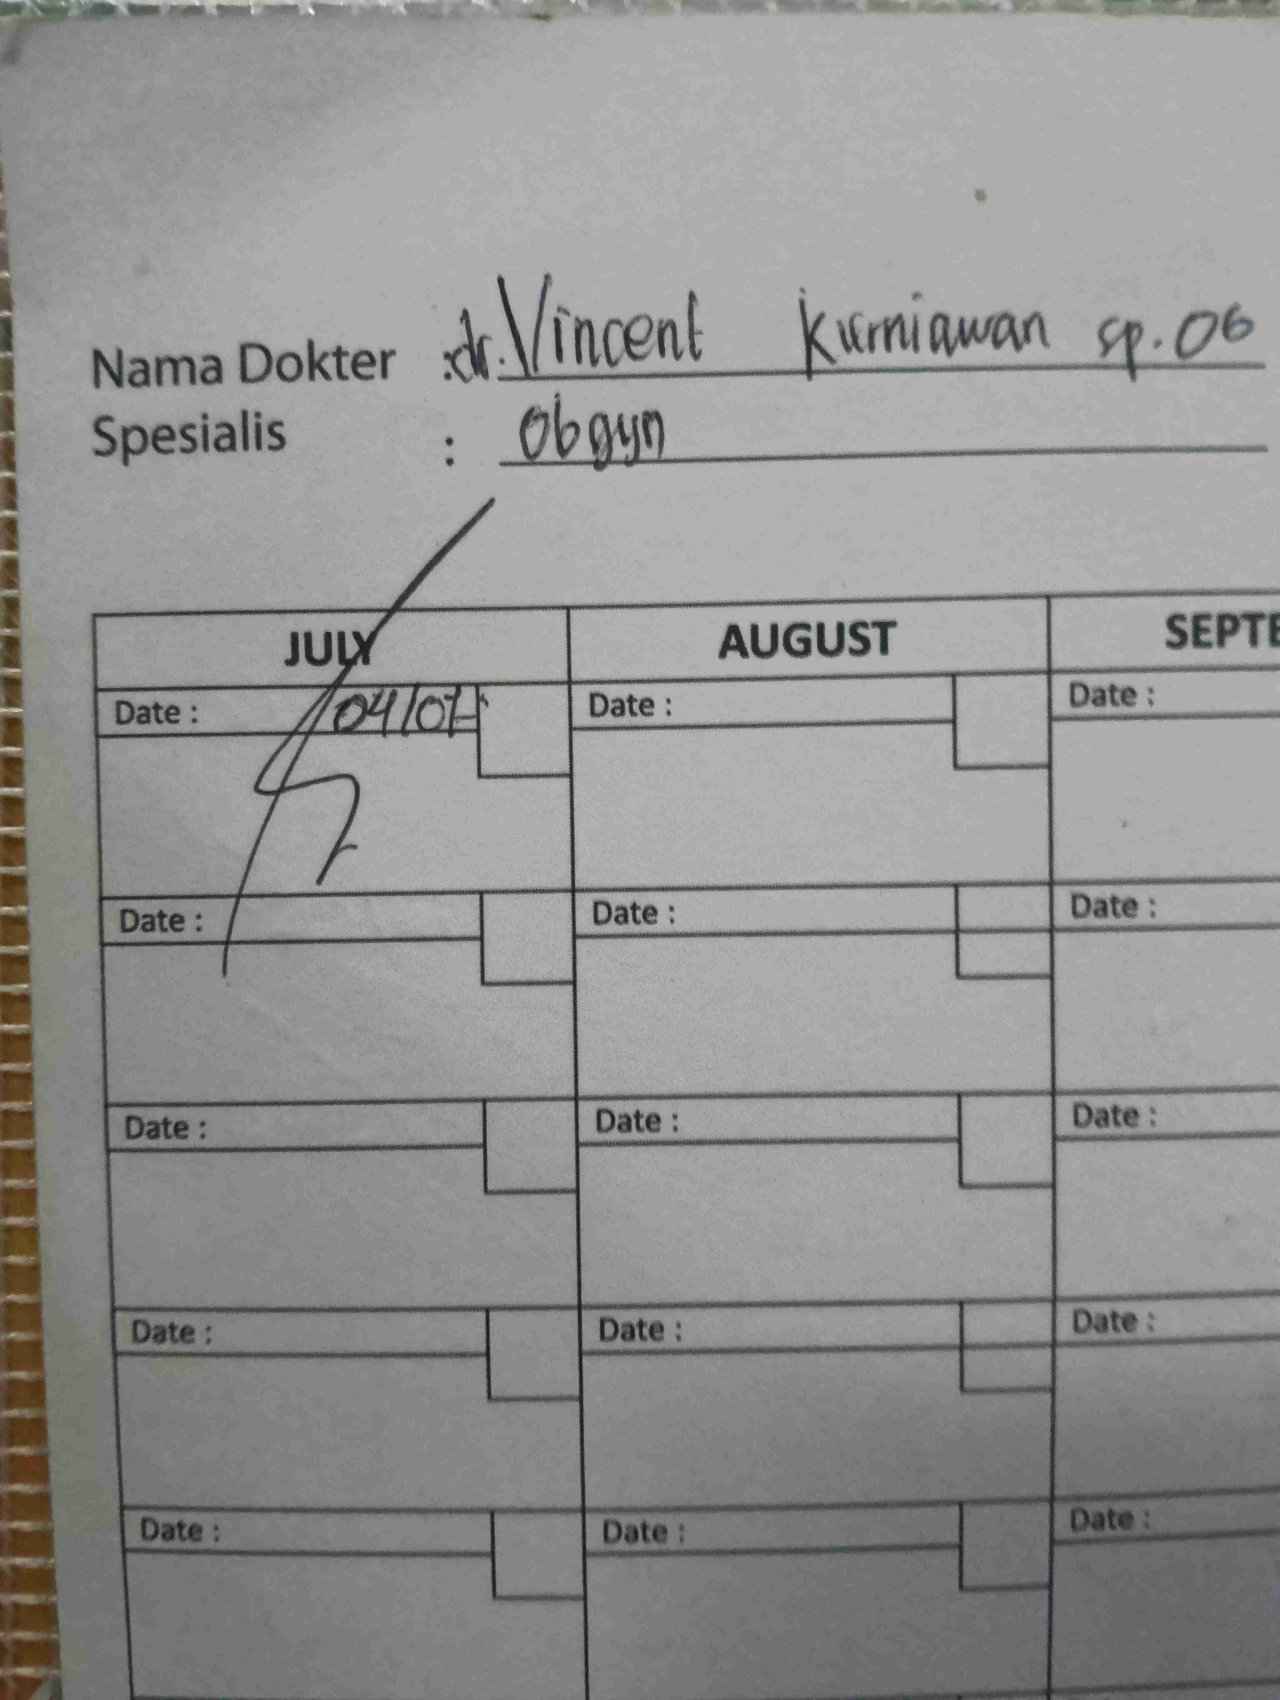 Nama Dokter : dr. Vincent Kurniawan sp.OG
Spesialis : Obgyn
JULY AUGUST SEPTE
Date : 04/07 Date : Date :
Date : Date : Date :
Date : Date : Date :
Date : Date : Date :
Date : Date : Date :